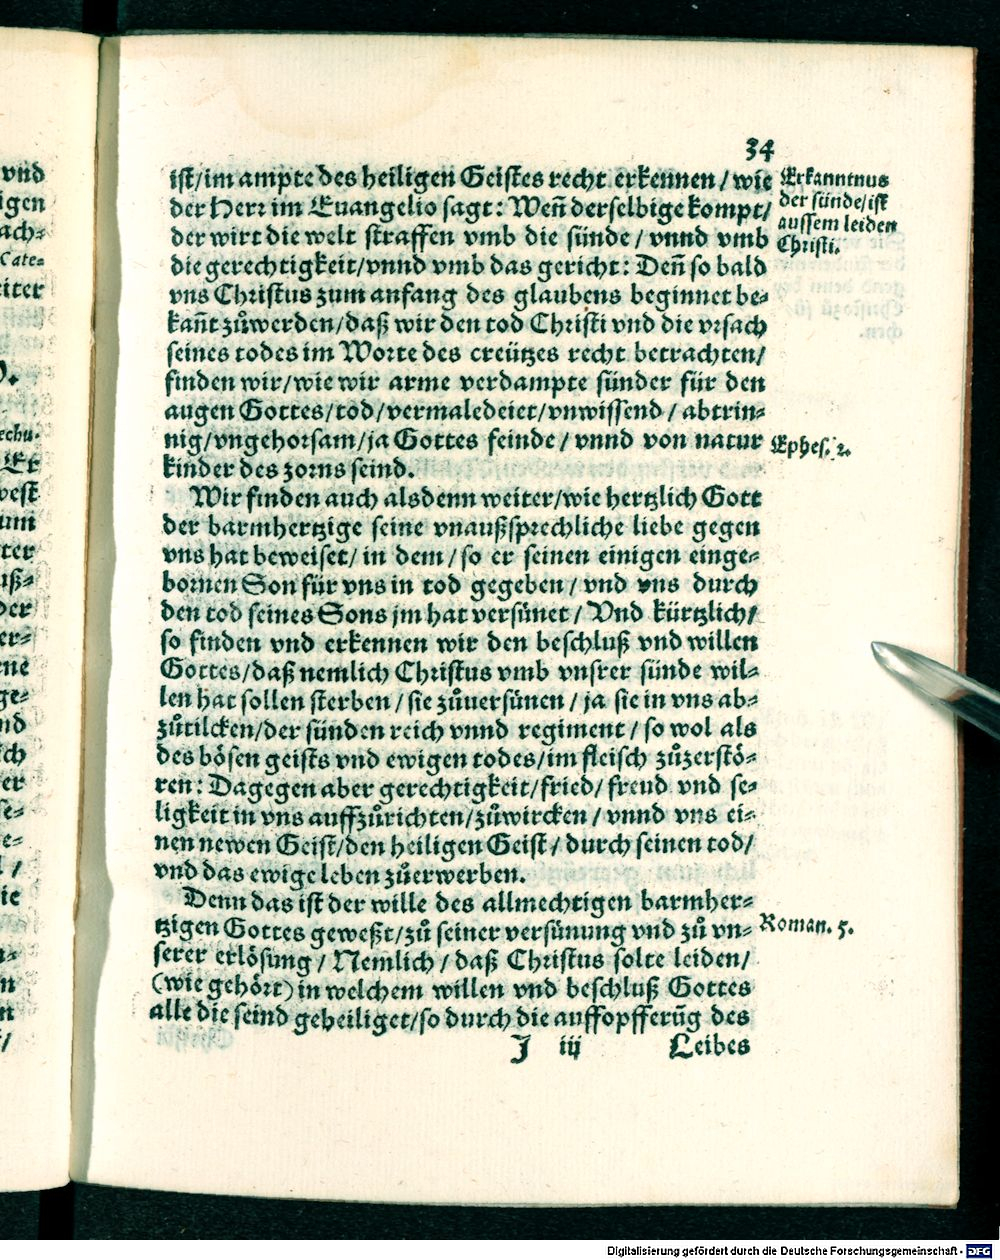 34
ist/im ampte des heiligen Geistes recht erkennen/wie
der Herr im Euangelio sagt: Weñ derselbige kompt/
der wirt die welt straffen vmb die sünde/vnnd vmb
die gerechtigkeit/vnnd vmb das gericht: Deñ so bald
vns Christus zum anfang des glaubens beginnet be-
kañt zůwerden/daß wir den tod Christi vnd die vrsach
seines todes im Worte des creützes recht betrachten/
finden wir/wie wir arme verdampte sünder für den
augen Gottes/tod/vermaledeiet/vnwissend/abtrin-
nig/vngehorsam/ja Gottes feinde/vnnd von natur
kinder des zorns seind.
Wir finden auch alsdenn weiter/wie hertzlich Gott
der barmhertzige seine vnaußsprechliche liebe gegen
vns hat beweiset/in dem/so er seinen einigen einge-
bornen Son für vns in tod gegeben/vnd vns durch
den tod seines Sons jm hat versünet/Vnd kürtzlich/
so finden vnd erkennen wir den beschluß vnd willen
Gottes/daß nemlich Christus vmb vnsrer sünde wil-
len hat sollen sterben/sie zůuersünen/ja sie in vns ab-
zůtilcken/der sünden reich vnnd regiment/so wol als
des bösen geists vnd ewigen todes/im fleisch zůzerstö-
ren: Dagegen aber gerechtigkeit/fried/freud vnd se-
ligkeit in vns auffzůrichten/zůwircken/vnnd vns ei-
nen newen Geist/den heiligen Geist/durch seinen tod/
vnd das ewige leben zůerwerben.
Denn das ist der wille des allmechtigen barmher-
tzigen Gottes geweßt/zů seiner versünung vnd zů vn-
serer erlösung/Nemlich/daß Christus solte leiden/
(wie gehört) in welchem willen vnd beschluß Gottes
alle die seind geheiliget/so durch die auffopfferũg des
J iii Leibes
Erkanntnus
der sünde/ist
aussem leiden
Christi.
Ephes. 2.
Roman. 5.
vnd
igen
ach-
Cate-
eiter
echu-
Er
vest
um
ter
uß-
der
er-
ne
ge-
nd
ich
er
se-
e-
ie
n
n
Digitalisierung gefördert durch die Deutsche Forschungsgemeinschaft - DFG